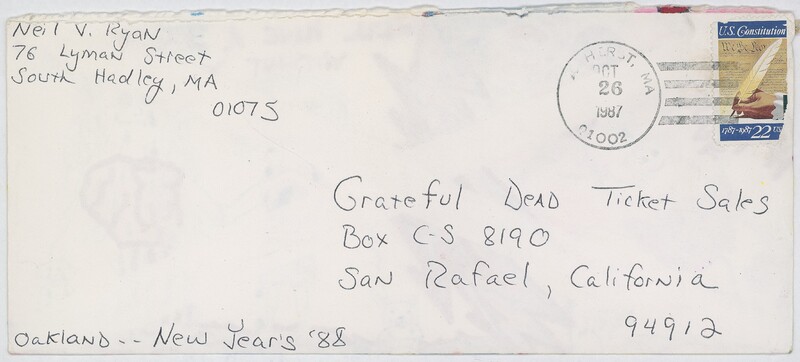 Neil V. Ryan
76 Lyman Street
South Hadley, MA
01075
AMHERST, MA
OCT
26
1987
01002
U.S. Constitution
We the People
1787-1987 22 USA
Grateful Dead Ticket Sales
Box C-S 8190
San Rafael, California
94912
Oakland -- New Year's '88